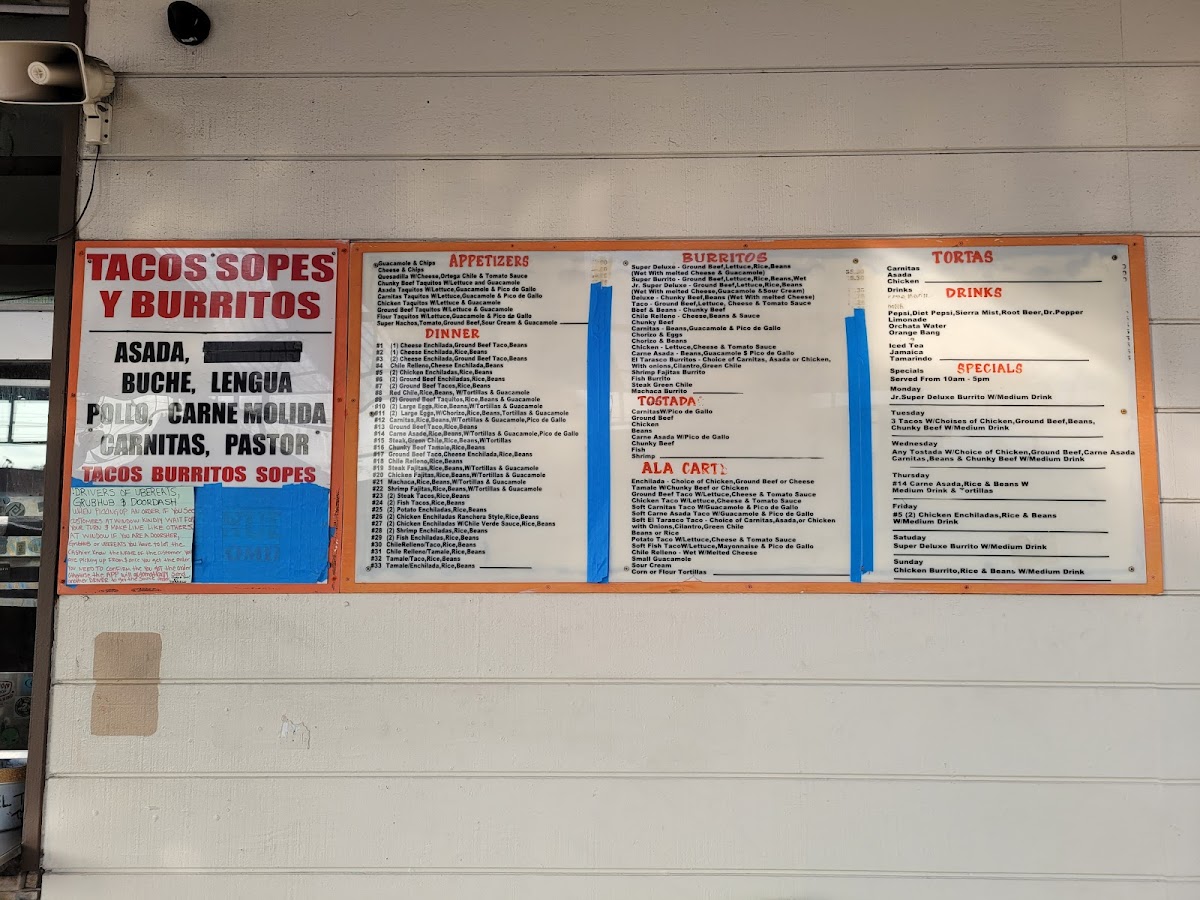 TACOS SOPES
Y BURRITOS
ASADA,
BUCHE, LENGUA
POLLO, CARNE MOLIDA
CARNITAS, PASTOR
TACOS BURRITOS SOPES
DRIVERS OF UBEREATS,
GRUBHUB & DOORDASH
WHEN PICKING UP AN ORDER IF YOU SEE
CUSTOMERS AT WINDOW KINDLY WAIT FOR
YOUR TURN & MAKE LINE LIKE OTHERS.
AT WINDOW IF YOU ARE A DOORDASHER,
GRUBHUB OR UBEREATS YOU HAVE TO LET THE
CASHIER KNOW THE NAME OF THE CUSTOMER YOU
ARE PICKING UP FROM. ONCE YOU GET THE ORDER
YOU NEED TO CONFIRM THE YOU GOT THE ORDER
APPETIZERS
Guacamole & Chips
Cheese & Chips
Quesadilla W/Cheese,Ortega Chile & Tomato Sauce
Chunky Beef Taquitos W/Lettuce and Guacamole
Asada Taquitos W/Lettuce,Guacamole & Pico de Gallo
Carnitas Taquitos W/Lettuce,Guacamole & Pico de Gallo
Chicken Taquitos W/Lettuce & Guacamole
Ground Beef Taquitos W/Lettuce & Guacamole
Flour Taquitos W/Lettuce,Guacamole & Pico de Gallo
Super Nachos,Tomato,Ground Beef,Sour Cream & Guacamole
DINNER
#1 (1) Cheese Enchilada,Ground Beef Taco,Beans
#2 (1) Cheese Enchilada,Rice,Beans
#3 (2) Cheese Enchilada,Ground Beef Taco,Beans
#4 Chile Relleno,Cheese Enchilada,Beans
#5 (2) Chicken Enchiladas,Rice,Beans
#6 (2) Ground Beef Enchiladas,Rice,Beans
#7 (2) Ground Beef Tacos,Rice,Beans
#8 Red Chile,Rice,Beans, W/Tortillas & Guacamole
#9 (2) Ground Beef Taquitos,Rice,Beans & Guacamole
#10 (2) Large Eggs,Rice,Beans,W/Tortillas & Guacamole
#11 (2) Large Eggs,W/Chorizo,Rice,Beans,Tortillas & Guacamole
#12 Carnitas,Rice,Beans,W/Tortillas & Guacamole,Pico de Gallo
#13 Ground Beef Taco,Rice,Beans
#14 Carne Asada,Rice,Beans,W/Tortillas & Guacamole,Pico de Gallo
#15 Steak,Green Chile,Rice,Beans,W/Tortillas
#16 Chunky Beef Tamale,Rice,Beans
#17 Ground Beef Taco,Cheese Enchilada,Rice,Beans
#18 Chile Relleno,Rice,Beans
#19 Steak Fajitas,Rice,Beans,W/Tortillas & Guacamole
#20 Chicken Fajitas,Rice,Beans,W/Tortillas & Guacamole
#21 Machaca,Rice,Beans,W/Tortillas & Guacamole
#22 Shrimp Fajitas,Rice,Beans,W/Tortillas & Guacamole
#23 (2) Steak Tacos,Rice,Beans
#24 (2) Fish Tacos,Rice,Beans
#25 (2) Potato Enchiladas,Rice,Beans
#26 (2) Chicken Enchiladas Ranchera Style,Rice,Beans
#27 (2) Chicken Enchiladas W/Chile Verde Sauce,Rice,Beans
#28 (2) Shrimp Enchiladas,Rice,Beans
#29 (2) Fish Enchiladas,Rice,Beans
#30 ChileRelleno/Taco,Rice,Beans
#31 Chile Relleno/Tamale,Rice,Beans
#32 Tamale/Taco,Rice,Beans
#33 Tamale/Enchilada,Rice,Beans
BURRITOS
Super Deluxe - Ground Beef,Lettuce,Rice,Beans
(Wet With melted Cheese & Guacamole)
Super Burrito - Ground Beef,Lettuce,Rice,Beans,Wet
Jr. Super Deluxe - Ground Beef,Lettuce,Rice,Beans
(Wet With Melted Cheese,Guacamole &Sour Cream)
Deluxe - Chunky Beef,Beans (Wet With melted Cheese)
Taco - Ground Beef,Lettuce, Cheese & Tomato Sauce
Beef & Beans - Chunky Beef
Chile Relleno - Cheese,Beans & Sauce
Chunky Beef
Carnitas - Beans,Guacamole & Pico de Gallo
Chorizo & Eggs
Chorizo & Beans
Chicken - Lettuce,Cheese & Tomato Sauce
Carne Asada - Beans,Guacamole $ Pico de Gallo
El Tarasco Burritos - Choice of Carnitas, Asada or Chicken,
With onions,Cilantro,Green Chile
Shrimp Fajitas Burrito
Fish Burrito
Steak Green Chile
Machaca Burrito
TOSTADA
CarnitasW/Pico de Gallo
Ground Beef
Chicken
Beans
Carne Asada W/Pico de Gallo
Chunky Beef
Fish
Shrimp
ALA CART
Enchilada - Choice of Chicken,Ground Beef or Cheese
Tamale W/Chunky Beef or Chicken
Ground Beef Taco W/Lettuce,Cheese & Tomato Sauce
Chicken Taco W/Lettuce,Cheese & Tomato Sauce
Soft Carnitas Taco W/Guacamole & Pico de Gallo
Soft Carne Asada Taco W/Guacamole & Pico de Gallo
Soft El Tarasco Taco - Choice of Carnitas,Asada,or Chicken
with Onions,Cilantro,Green Chile
Beans or Rice
Potato Taco W/Lettuce,Cheese & Tomato Sauce
Soft Fish TacoW/Lettuce,Mayonnaise & Pico de Gallo
Chile Relleno - Wet W/Melted Cheese
Small Guacamole
Sour Cream
Corn or Flour Tortillas
TORTAS
Carnitas
Asada
Chicken
Drinks
DRINKS
Pepsi,Diet Pepsi,Sierra Mist,Root Beer,Dr.Pepper
Limonade
Orchata Water
Orange Bang
Iced Tea
Jamaica
Tamarindo
SPECIALS
Specials
Served From 10am - 5pm
Monday
Jr.Super Deluxe Burrito W/Medium Drink
Tuesday
3 Tacos W/Choises of Chicken,Ground Beef,Beans,
Chunky Beef W/Medium Drink
Wednesday
Any Tostada W/Choice of Chicken,Ground Beef,Carne Asada
Carnitas,Beans & Chunky Beef W/Medium Drink
Thursday
#14 Carne Asada,Rice & Beans W
Medium Drink & Tortillas
Friday
#5 (2) Chicken Enchiladas,Rice & Beans
W/Medium Drink
Satuday
Super Deluxe Burrito W/Medium Drink
Sunday
Chicken Burrito,Rice & Beans W/Medium Drink